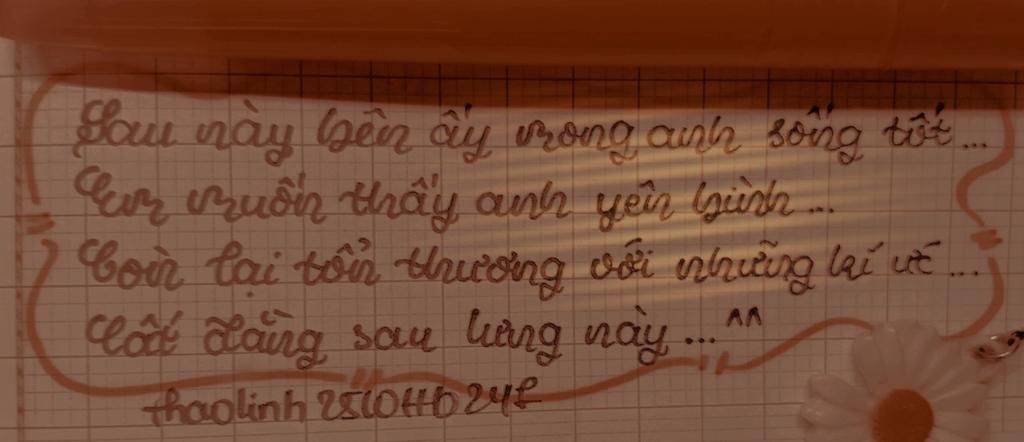 Sau này bên ấy mong anh sống tốt...
Em muốn thấy anh yên bình...
Còn lại tổn thương với những kí ức...
Cất đằng sau lưng này...^^
thaolinh